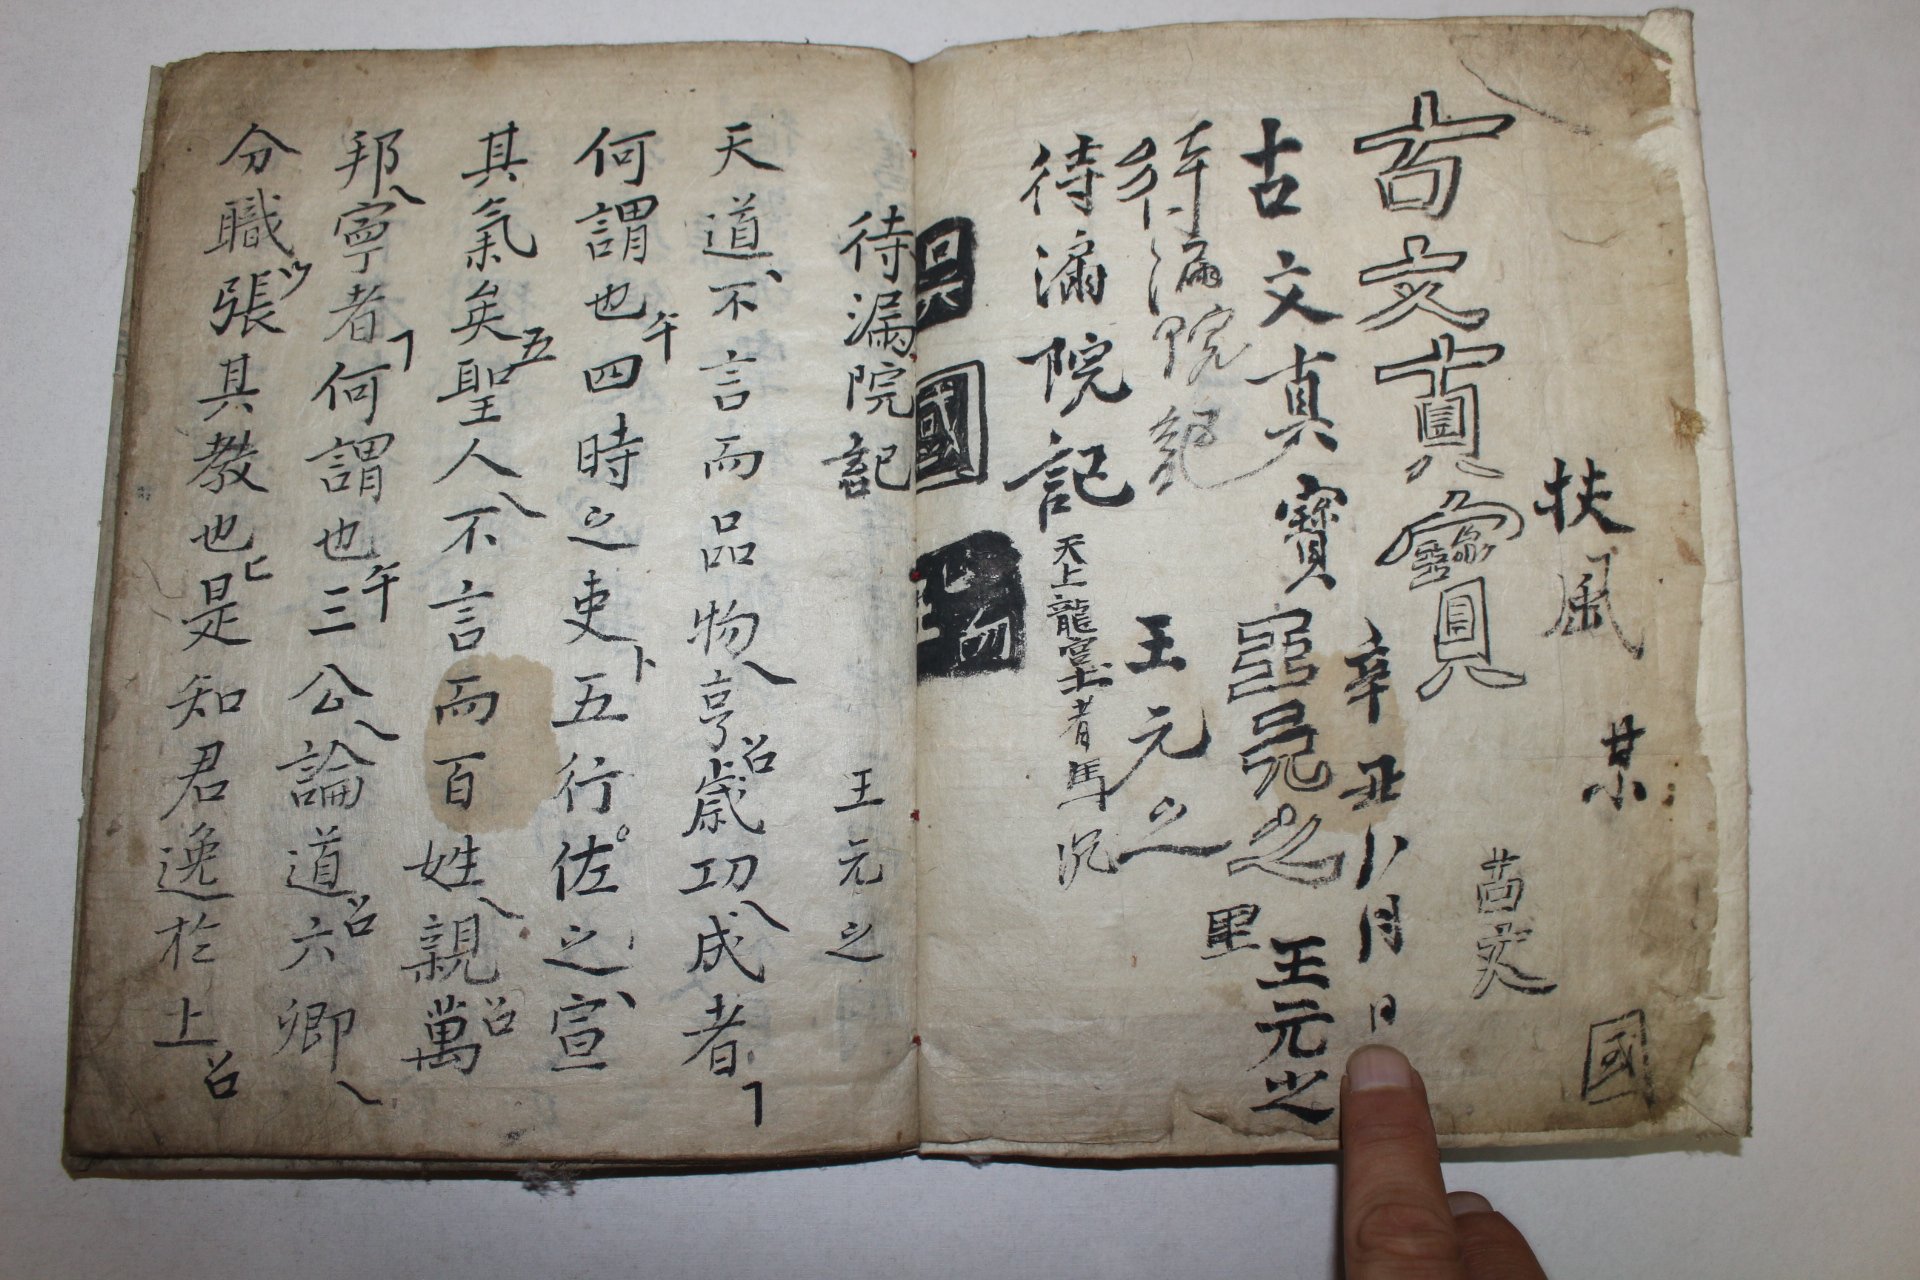 扶風 某
國
古文眞寶
辛丑八月 日
古文真寶
王元之
王元之
里
待漏院記
王元之
待漏院記
天上龍宮
國
待漏院記 王元之
天道不言而品物亨召歲功成者
何謂也午四時之吏卜五行佐之宣
其氣矣五聖人不言而百姓親召萬
邦寧者何謂也午三公論道召六卿
分職張其教也匕是知君逸於上召